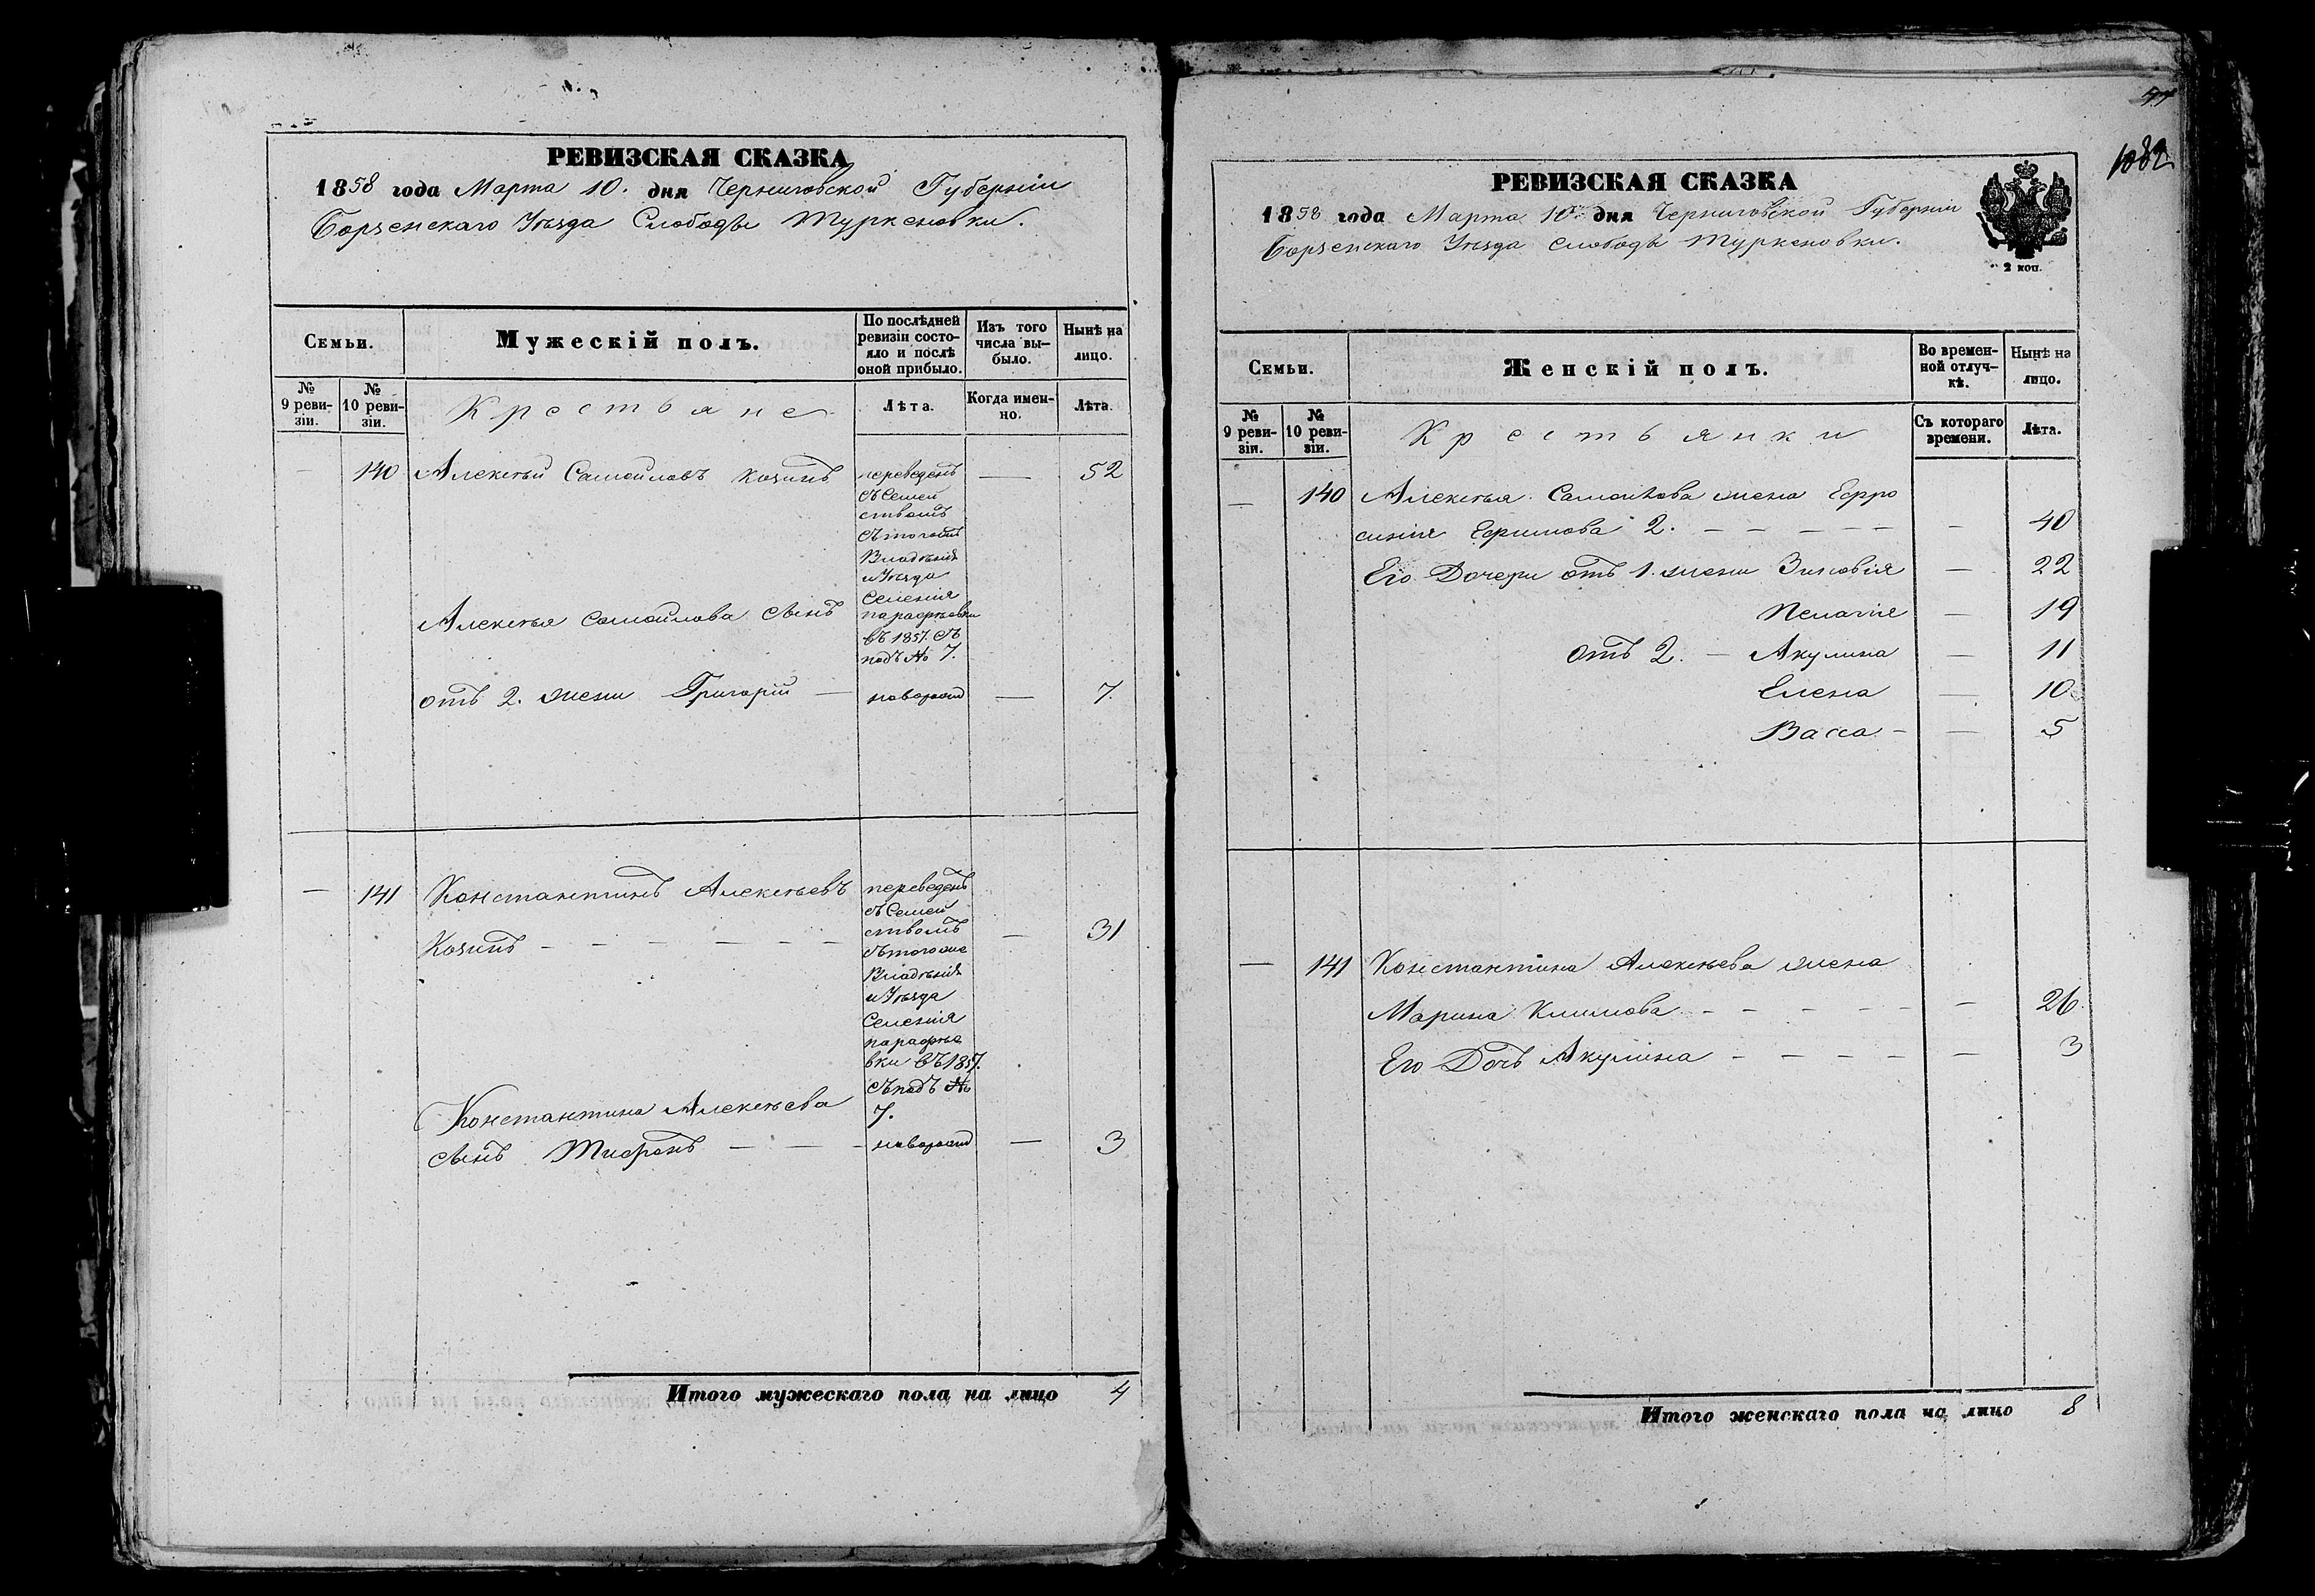 РЕВИЗСКАЯ СКАЗКА
1858 года Марта 10. дня Черниговской Губерніи
Борзенскаго Уѣзда Слободы Туркеновки.
Семьи.
Мужескій полъ.
По послѣдней ревизіи состояло и послѣ оной прибыло.
Изъ того числа выбыло.
Нынѣ на лицо.
№ 9 ревизіи.
№ 10 ревизіи.
Крестьяне
Лѣта.
Когда именно.
Лѣта.
— 140 Алексѣй Самойловъ Козинъ
переведенъ
съ Семей
ствомъ
съ тогожъ
Владѣнія
и Уѣзда
Селенія
парафѣевки
въ 1857. съ
подъ № 7.
— 52
Алексѣя Самойлова Сынъ
отъ 2. жены Григорій — новорожд — 7.
— 141 Константинъ Алексѣевъ
Козинъ — — — — — —
переведенъ
съ Семей
ствомъ
съ тогоже
Владѣнія
и Уѣзда
Селенія
парафѣе
вки въ 1857.
съ подъ №
7.
— 31
Константина Алексѣева
сынъ Тифонъ — — — новорожд — 3
Итого мужескаго пола на лицо 4
77
1082
РЕВИЗСКАЯ СКАЗКА
1858 года Марта 10 дня Черниговской Губерніи
Борзенскаго Уѣзда слободы Туркеновки.
2 коп.
Семьи.
Женскій полъ.
Во временной отлучкѣ.
Нынѣ на лицо.
№ 9 ревизіи.
№ 10 ревизіи.
Крестьянки
Съ котораго времени.
Лѣта.
— 140 Алексѣя Самойлова жена Ефро
синія Ефимова 2. — — — — — — 40
Его Дочери отъ 1. жены Зиновія — 22
Пелагія — 19
отъ 2. — Акулина — 11
Елена — 10
Васса — — 5
— 141 Константина Алексѣева жена
Марина Климова — — — — — — 26
Его Дочь Акулина — — — — — 3
Итого женскаго пола на лицо 8